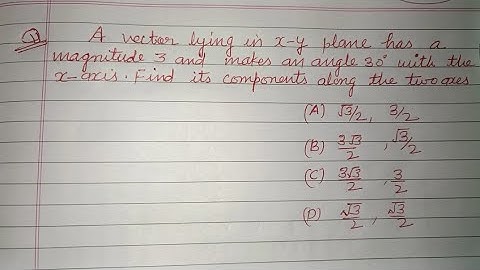 Q) A vector lying in x-y plane has a
magnitude 3 and makes an angle 30° with the
x-axis. Find its components along the two axes
(A) √3/2, 3/2
(B) 3√3/2, √3/2
(C) 3√3/2, 3/2
(D) √3/2, √3/2